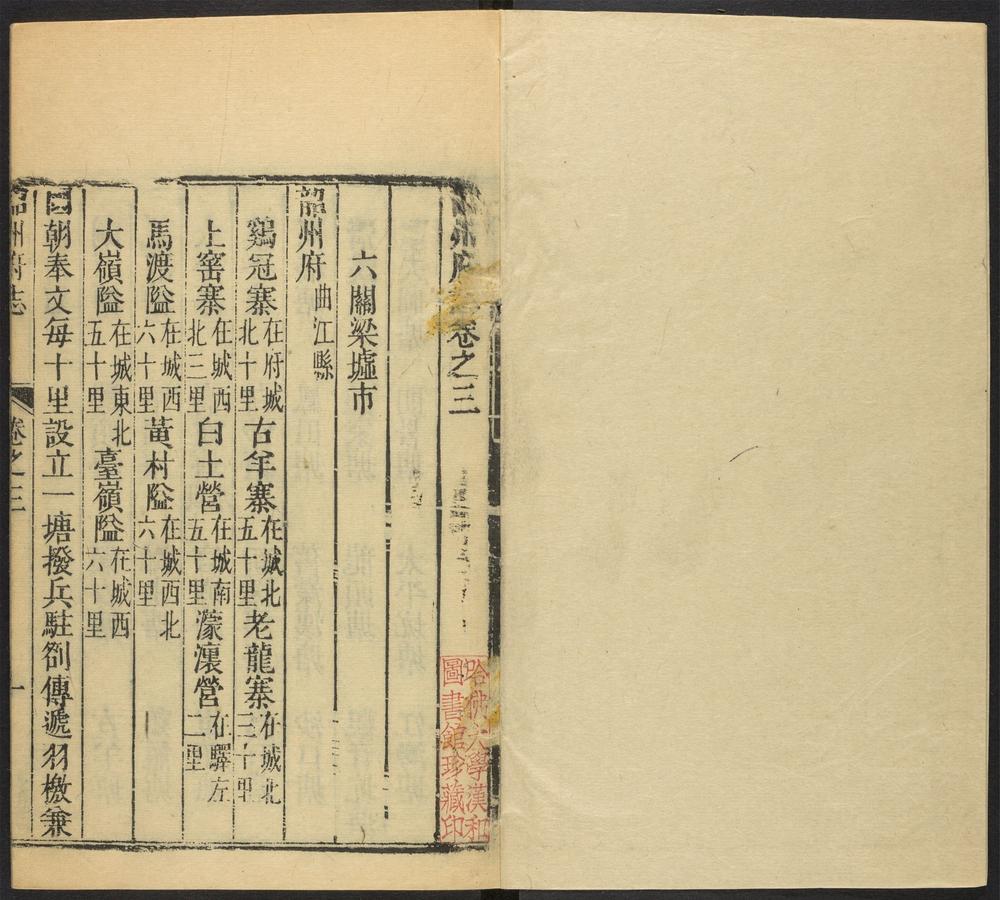 韶州府志卷之三
六關梁墟市
韶州府曲江縣
鷄冠寨在府城北十里古羊寨在城北五十里老龍寨在城北三十里
上窰寨在城西北三里白土營在城南五十里濛瀼營在驛左二里
馬渡隘在城西六十里黃村隘在城西北六十里
大嶺隘在城東北五十里臺嶺隘在城西六十里
國朝奉文每十里設立一塘撥兵駐劄傳遞羽檄兼
韶州府志
卷之三
一
哈佛大學漢和
圖書館珍藏印